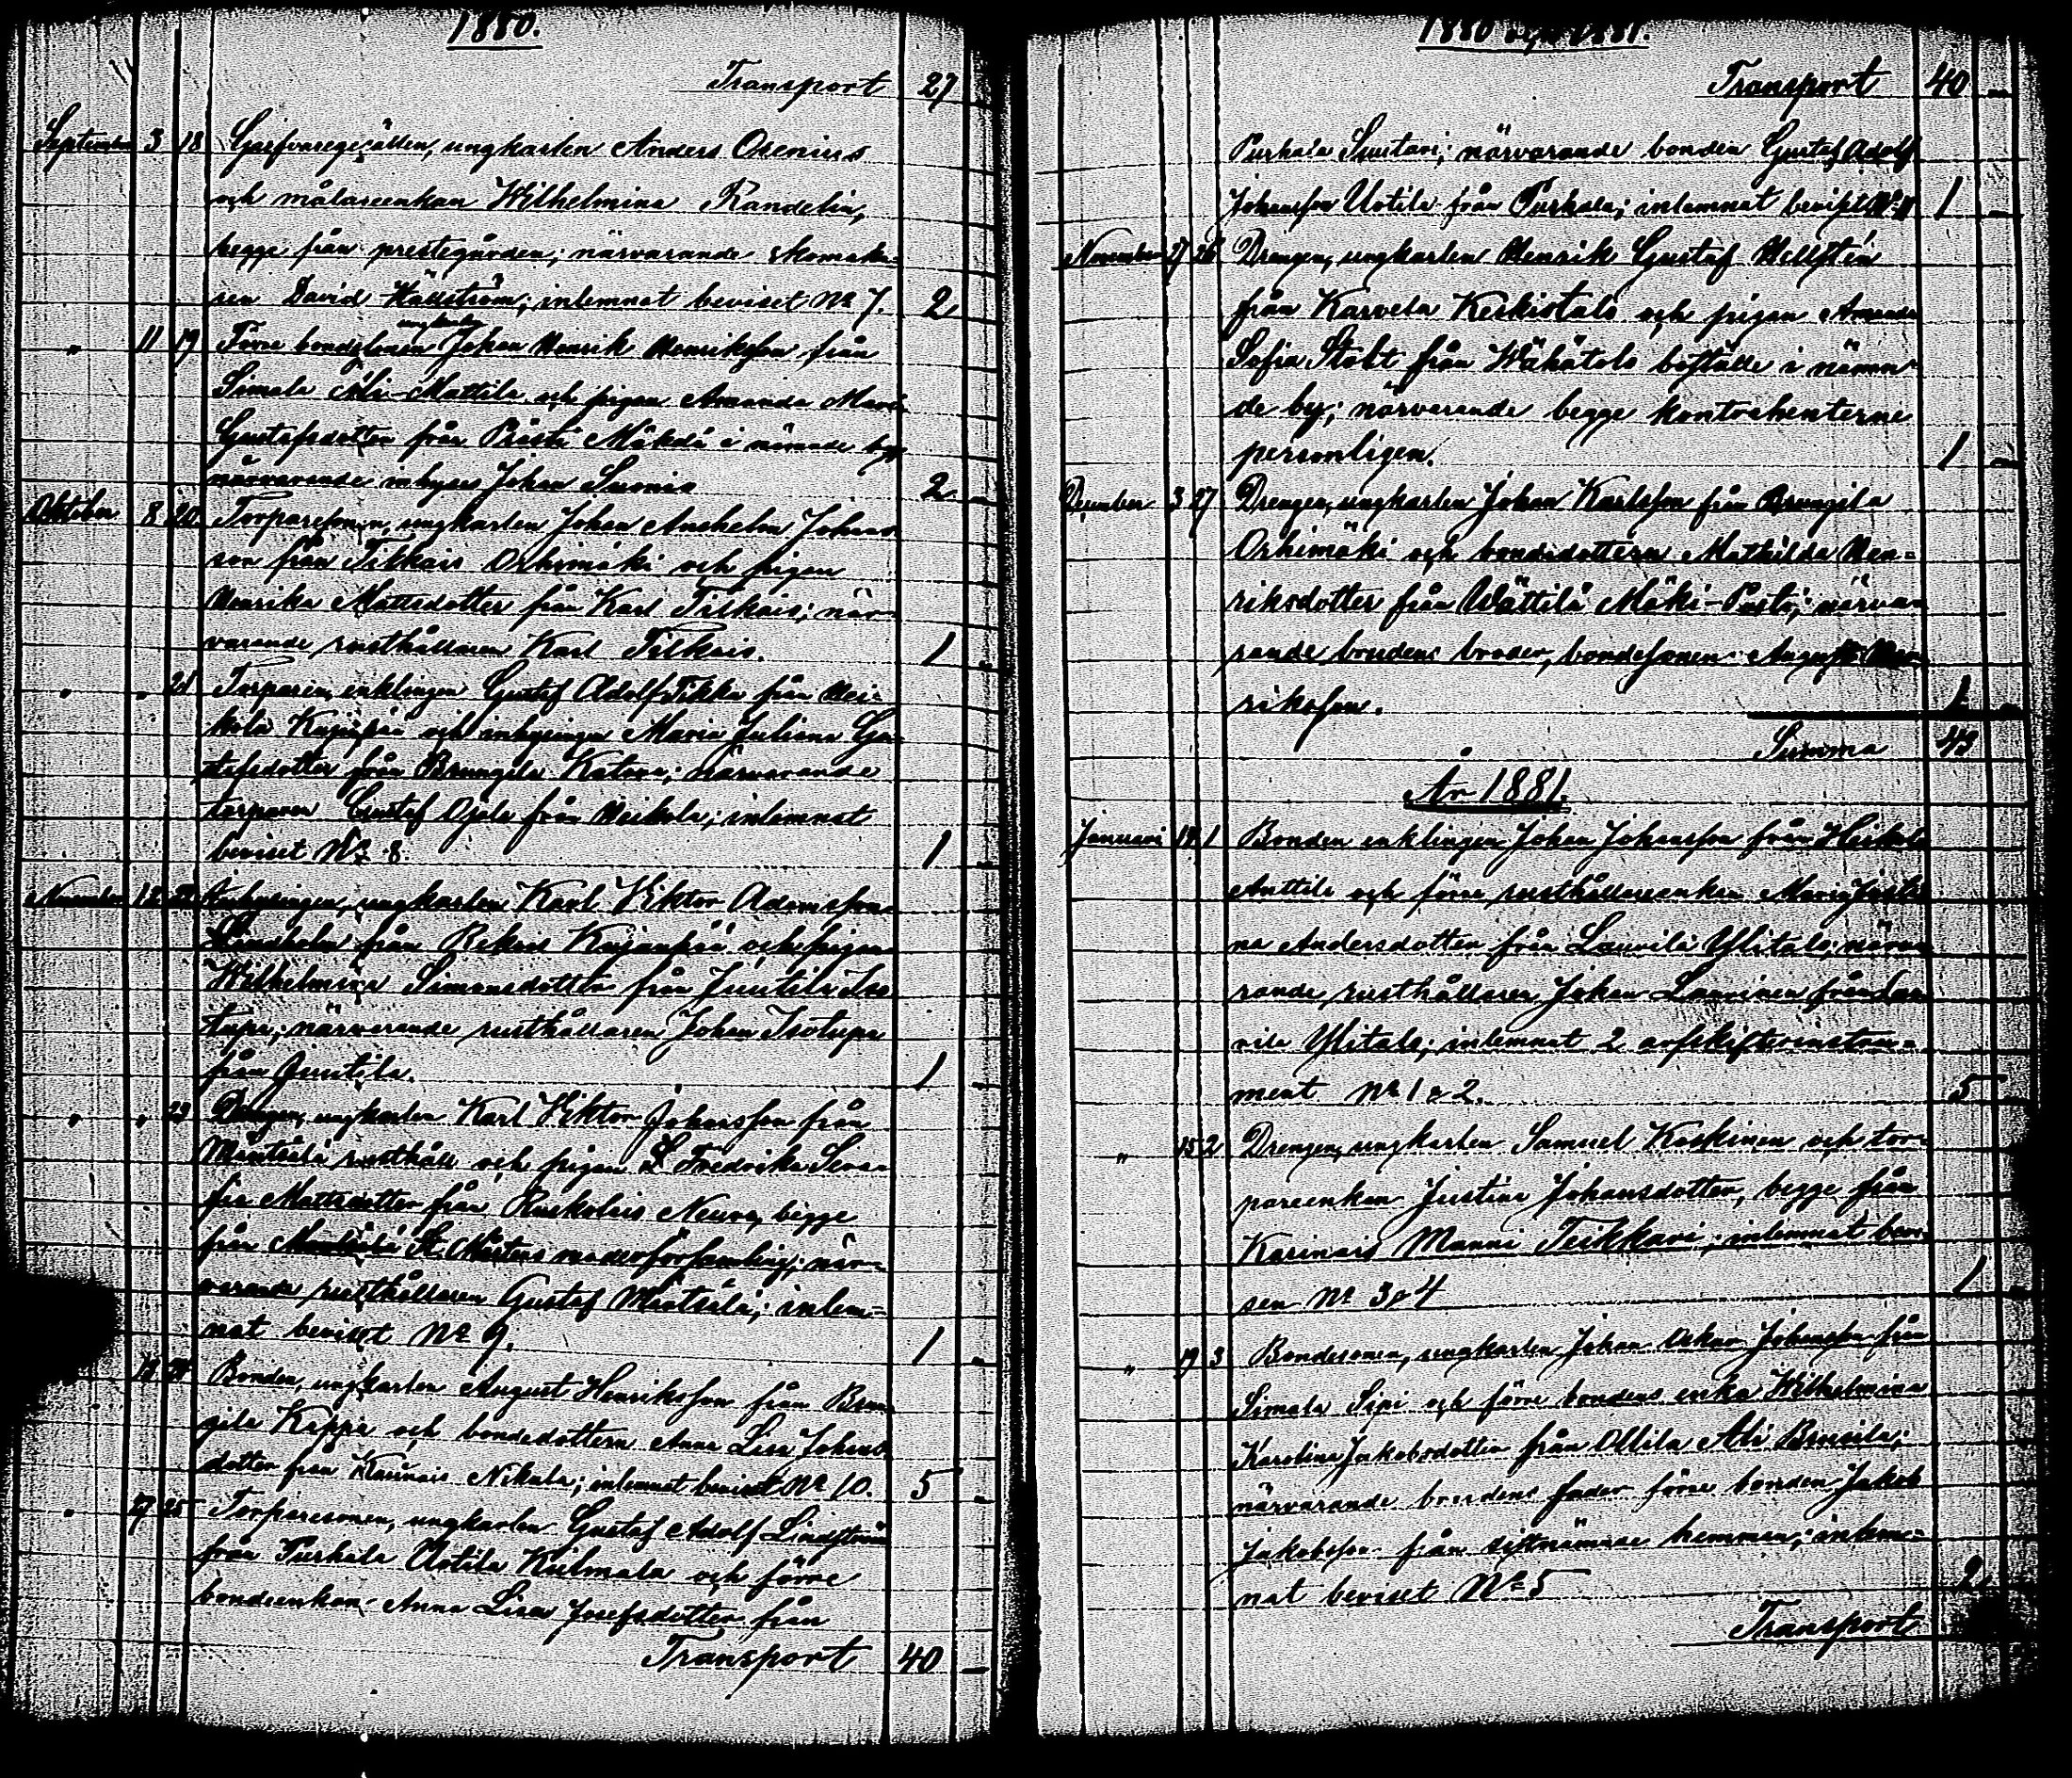 1880.
Transport 27
September 3 18 ungkarlen Anders Osenius
och målareenkan Wilhelmina Randelin,
begge från prestegården; närvarande skomaka-
ren David Hällström; inlemnat beviset No 7. 2
" 11 19 Förre bondesonen ungkarlen Johan Henrik Henriksson från
Simala Ali-Mattila och pigan Amanda Maria
Gustafsdotter från Mäkelä i nämnde by;
närvarande inhyses Johan Suonio 2 -
Oktober 8 20 Torparesonen, ungkarlen Johan Anshelm Johans-
son från Tilkais Orhimäki och pigan
Henrika Mattsdotter från Karl Tilkais; när-
varande rusthållaren Karl Tilkais. 1 -
" " 21 Torparen, enklingen Gustaf Adolf Tikka från Hei-
kola Kujanpää och inhysingen Maria Juliana Gu-
stafsdotter från Brungila Katava; närvarande
torparen Gustaf Ojala från Heikola; inlemnat
beviset No 8. 1 -
November 12 22 Inhysingen, ungkarlen Karl Viktor Adamsson
Lindholm från Kujanpää och pigan
Wilhelmina Simonsdotter från Juntila Iso-
tupa; närvarande rusthållaren Johan Isotupa
från Juntila. 1 -
" " 23 Drengen, ungkarlen Karl Viktor Johansson från
Mäntsälä rusthåll och pigan Fredrika Sera-
fia Mattsdotter från Ruskolais Neuva, begge
från St Mårtens moderförsamling; när-
varande rusthållaren Gustaf Mäntsälä; inlem-
nat beviset No 9. 1 -
19 24 Bonden, ungkarlen August Henriksson från Brun-
gila Keppä och bondedottern Anna Lisa Johans-
dotter från Karinais Nikula; inlemnat beviset No 10. 5 -
" 27 25 Torparesonen, ungkarlen Gustaf Adolf Lindström
från Purhala Uotila Kulmala och förre
bondeenkan Anna Lisa Josefsdotter från
Transport 40 -
1880 och 1881.
Transport 40 -
Purhala Suutari; närvarande bonden Gustaf Adolf
Johansson Uotila från Purhala; inlemnat beviset No 11 1 -
November 27 26 Drengen, ungkarlen Henrik Gustaf Hellstén
från Karvela Keskitalo och pigan Amanda
Sofia Stolt från Wähätalo boställe i nämn-
de by; närvarande begge kontrahenterne
personligen. 1 -
December 3 27 Drengen, ungkarlen Johan Karlsson från Brungila
Orhimäki och bondedottern Mathilda Hen-
riksdotter från Wättilä Mäki-Pusti; närva-
rande brudens broder, bondesonen August Hen-
riksson. 1 -
Summa 43
År 1881.
Januari 14 1 Bonden enklingen Johan Johansson från Heikola
Anttila och förre rusthållareenkan Maria Justi-
na Andersdotter från Laurila Ylitalo; närva-
rande rusthållaren Johan Laurinen från Lau-
rila Ylitalo; inlemnat 2 arfskiftesinstru-
ment No 1 & 2. 5 -
" 15 2 Drengen, ungkarlen Samuel Koskinen och tor-
pareenkan Justina Johansdotter, begge från
Karinais Manni Teikkari; inlemnat bevi-
sen No 3 & 4 1 -
" 19 3 Bondesonen, ungkarlen Johan Oskar Johansson från
Simala Sipi och förre bondens enka Wilhelmina
Karolina Jakobsdotter från Ollila Ali Brusila;
närvarande brudens fader förre bonden Jakob
Jakobsson från sistnämnde hemman; inlem-
nat beviset No 5 2
Transport